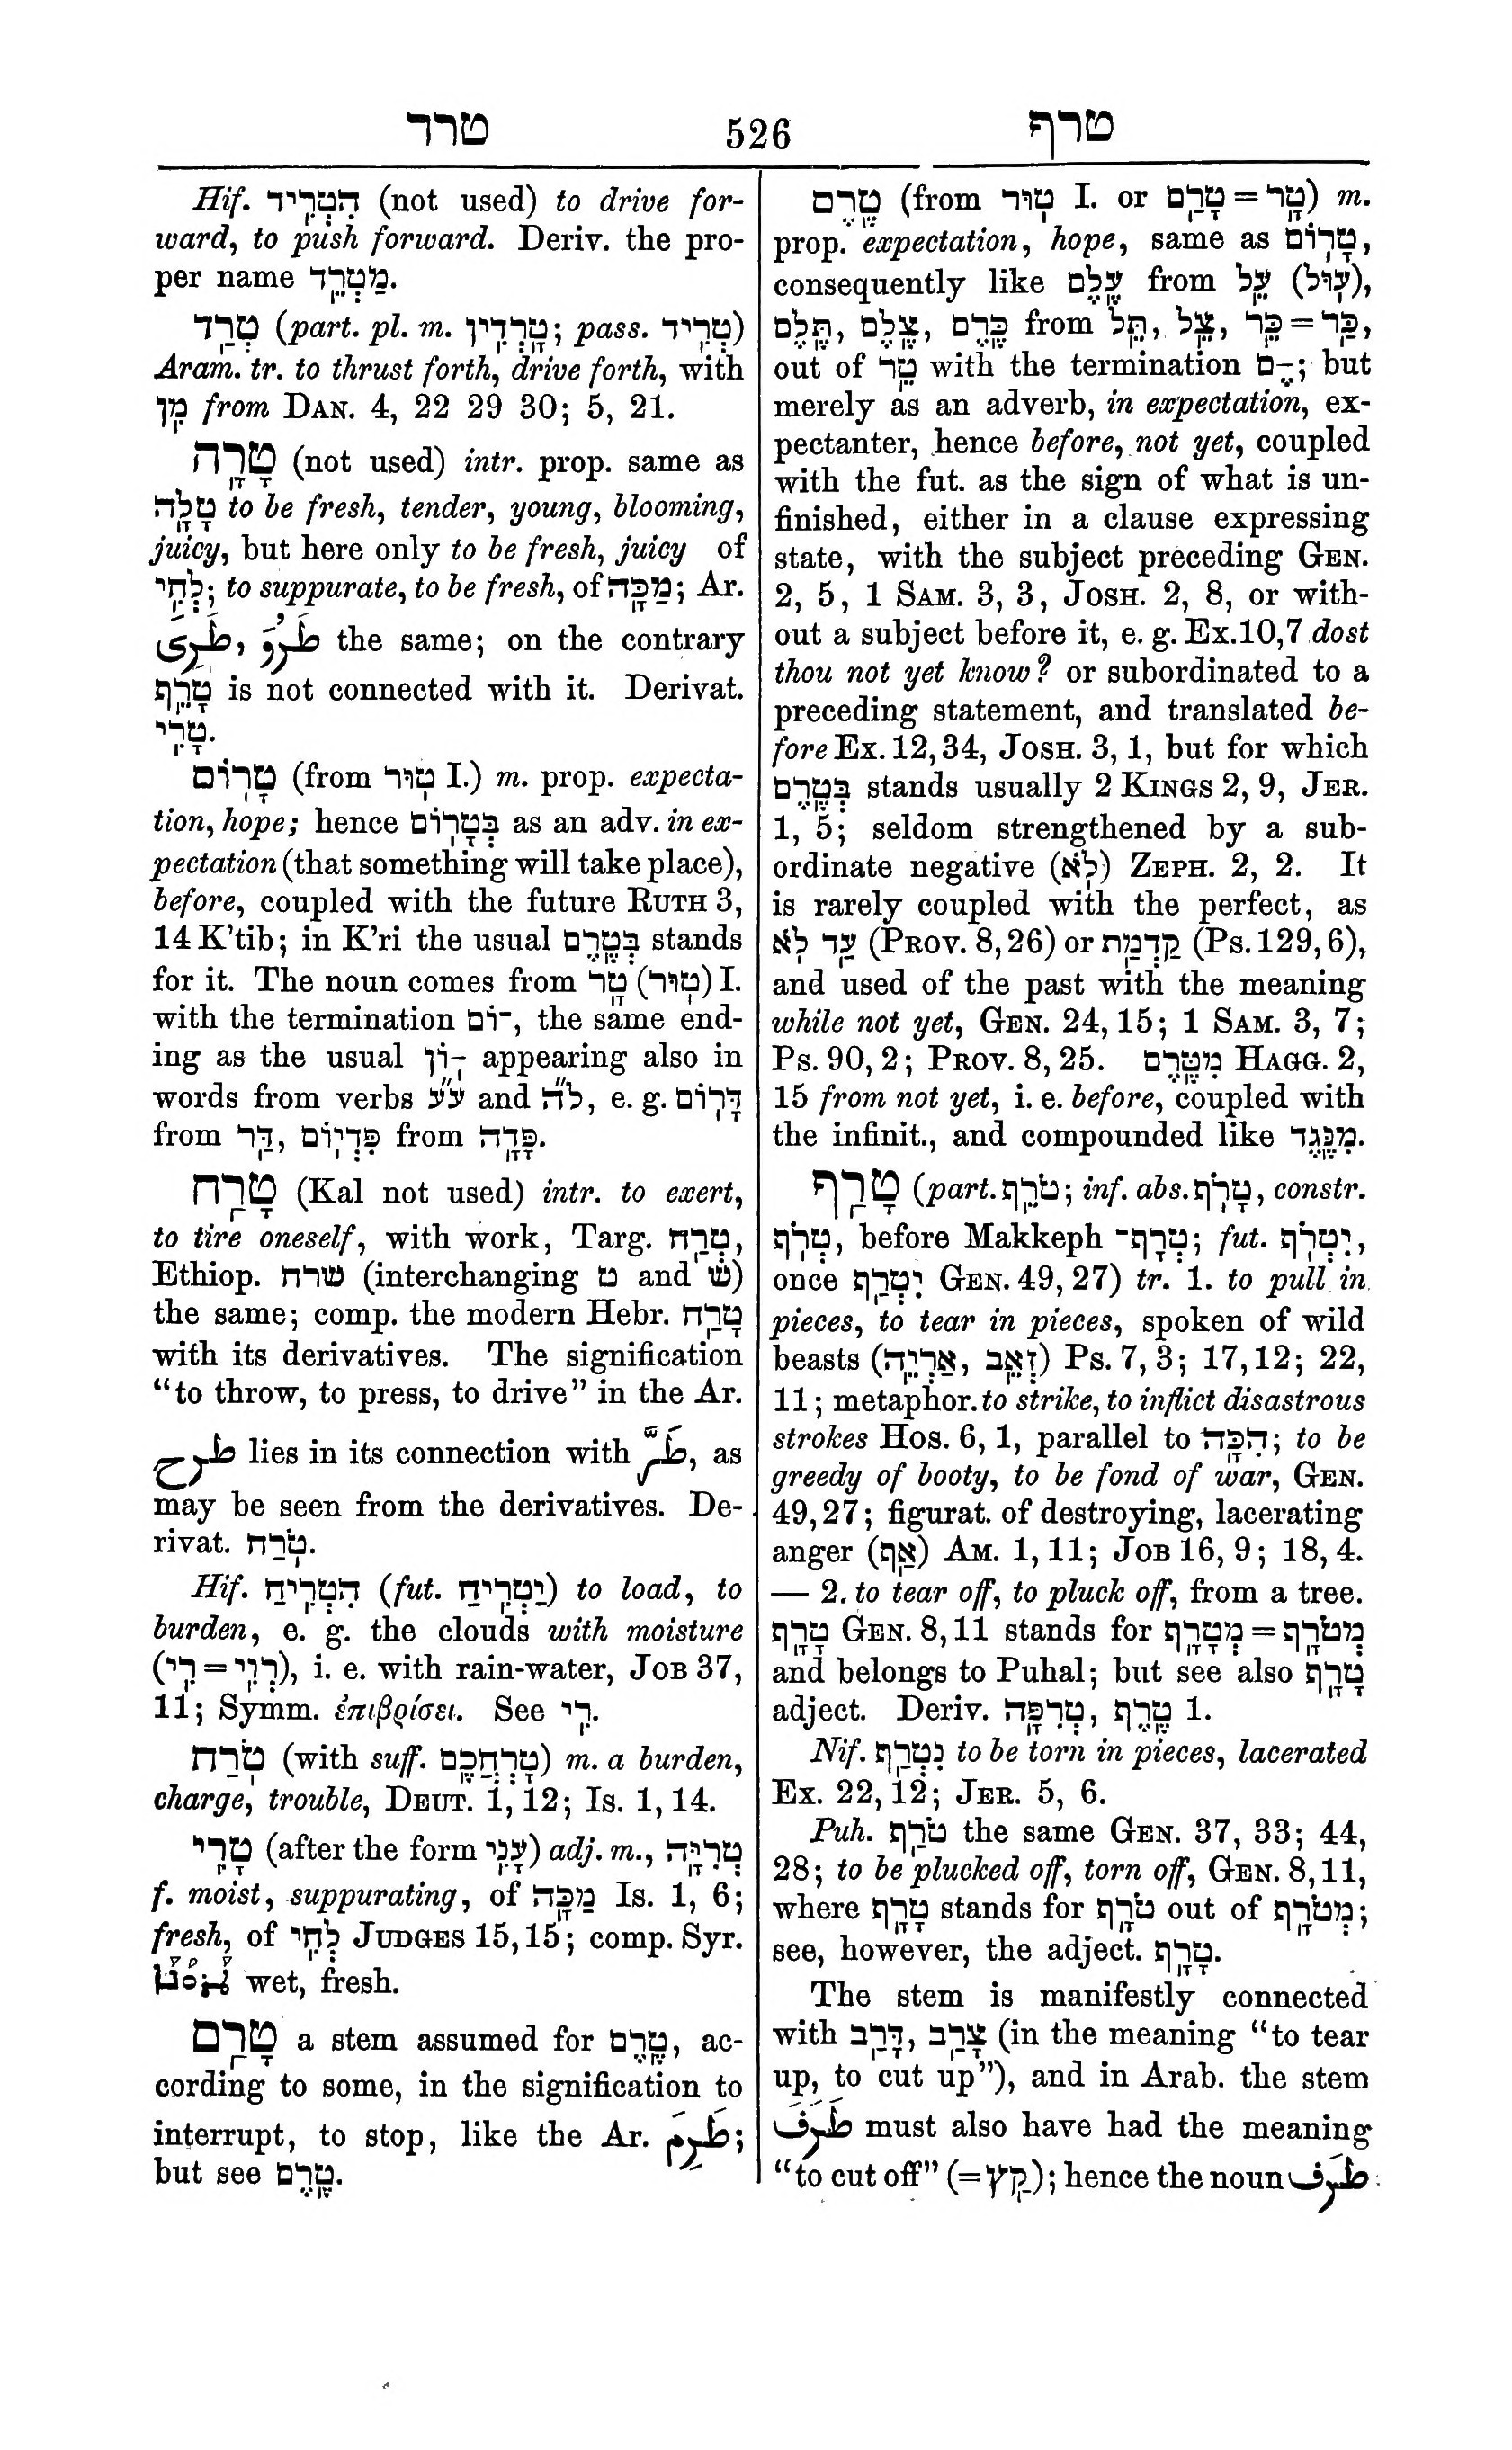 טרד 526 טרף
Hif. הִטְרִיד (not used) to drive for-
ward, to push forward. Deriv. the pro-
per name מַטְרֵד.
טְרַד (part. pl. m. טָרְדִין; pass. טְרִיד)
Aram. tr. to thrust forth, drive forth, with
מִן from DAN. 4, 22 29 30; 5, 21.
טָרָה (not used) intr. prop. same as
טָלָה to be fresh, tender, young, blooming,
juicy, but here only to be fresh, juicy of
לְחִי; to suppurate, to be fresh, of מַכָּה; Ar.
طَرُوَ, طَرِىَ the same; on the contrary
טָרֵף is not connected with it. Derivat.
טָרִי.
טָרוֹם (from טוּר I.) m. prop. expecta-
tion, hope; hence בְּטָרוֹם as an adv. in ex-
pectation (that something will take place),
before, coupled with the future RUTH 3,
14 K’tib; in K’ri the usual בְּטֶרֶם stands
for it. The noun comes from טָר (טוּר) I.
with the termination ־וֹם, the same end-
ing as the usual ־וֹן appearing also in
words from verbs ע״ע and ל״ה, e. g. דָּרוֹם
from דַּר, פִּדְיוֹם from פָּדָה.
טָרַח (Kal not used) intr. to exert,
to tire oneself, with work, Targ. טְרַח,
Ethiop. שרח (interchanging ט and שׁ)
the same; comp. the modern Hebr. טָרַח
with its derivatives. The signification
“to throw, to press, to drive” in the Ar.
طرح lies in its connection with طَرَّ, as
may be seen from the derivatives. De-
rivat. טֹרַח.
Hif. הִטְרִיחַ (fut. יַטְרִיחַ) to load, to
burden, e. g. the clouds with moisture
(רִי = רְוִי), i. e. with rain-water, JOB 37,
11; Symm. ἐπιβρίσει. See רִי.
טֹרַח (with suff. טָרְחֲכֶם) m. a burden,
charge, trouble, DEUT. 1, 12; IS. 1, 14.
טָרִי (after the form עָנִי) adj. m., טְרִיָּה
f. moist, suppurating, of מַכָּה IS. 1, 6;
fresh, of לְחִי JUDGES 15,15; comp. Syr.
wet, fresh.
טָרַם a stem assumed for טֶרֶם, ac-
cording to some, in the signification to
interrupt, to stop, like the Ar. طَرِمَ;
but see טֶרֶם.
טֶרֶם (from טוּר I. or טָרַם = טָר) m.
prop. expectation, hope, same as טָרוֹם,
consequently like עֶלֶם from עֵל (עוּל),
כֶּרֶם, צֶלֶם, תֶּלֶם from כַּר = כֵּר, צֵל, תֵּל,
out of טֵר with the termination ־ֶם; but
merely as an adverb, in expectation, ex-
pectanter, hence before, not yet, coupled
with the fut. as the sign of what is un-
finished, either in a clause expressing
state, with the subject preceding GEN.
2, 5, 1 SAM. 3, 3, JOSH. 2, 8, or with-
out a subject before it, e. g. EX.10,7 dost
thou not yet know? or subordinated to a
preceding statement, and translated be-
fore EX. 12,34, JOSH. 3, 1, but for which
בְּטֶרֶם stands usually 2 KINGS 2, 9, JER.
1, 5; seldom strengthened by a sub-
ordinate negative (לֹא) ZEPH. 2, 2. It
is rarely coupled with the perfect, as
עַד לֹא (PROV. 8,26) or קַדְמַת (PS.129,6),
and used of the past with the meaning
while not yet, GEN. 24, 15; 1 SAM. 3, 7;
PS. 90, 2; PROV. 8, 25. מִטֶּרֶם HAGG. 2,
15 from not yet, i. e. before, coupled with
the infinit., and compounded like מִנֶּגֶד.
טָרַף (part. טֹרֵף; inf. abs. טָרֹף, constr.
טְרֹף, before Makkeph טְרָף־; fut. יִטְרֹף,
once יִטְרַף GEN. 49, 27) tr. 1. to pull in
pieces, to tear in pieces, spoken of wild
beasts (זְאֵב, אַרְיֵה) PS. 7, 3; 17,12; 22,
11; metaphor. to strike, to inflict disastrous
strokes HOS. 6, 1, parallel to הִכָּה; to be
greedy of booty, to be fond of war, GEN.
49,27; figurat. of destroying, lacerating
anger (אַף) AM. 1, 11; JOB 16, 9; 18, 4.
— 2. to tear off, to pluck off, from a tree.
טָרָף GEN. 8,11 stands for מְטֹרָף = מְטָרָף
and belongs to Puhal; but see also טָרָף
adject. Deriv. טֶרֶף, טְרֵפָה 1.
Nif. נִטְרַף to be torn in pieces, lacerated
EX. 22, 12; JER. 5, 6.
Puh. טֹרַף the same GEN. 37, 33; 44,
28; to be plucked off, torn off, GEN. 8,11,
where טָרָף stands for טֹרָף out of מְטֹרָף;
see, however, the adject. טָרָף.
The stem is manifestly connected
with צָרַב, דָּרַב (in the meaning “to tear
up, to cut up”), and in Arab. the stem
طَرَفَ must also have had the meaning
“to cut off” (= קַץ); hence the noun طَرف